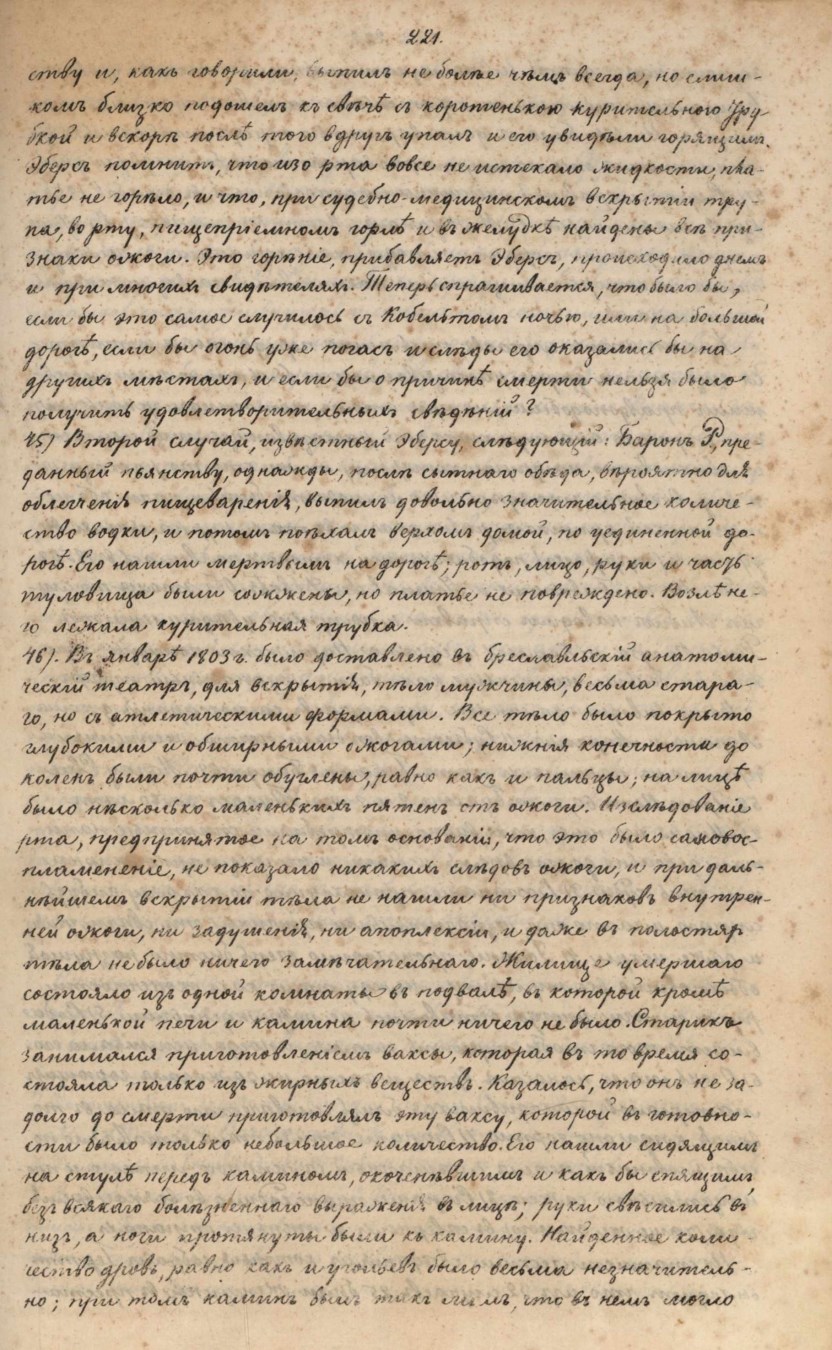 221.
ству и, какъ говорили, выпилъ не болѣе чѣмъ всегда, но слиш-
комъ близко подошелъ къ свѣчѣ съ коротенькою курительною тру-
бкой и вскорѣ послѣ того вдругъ упалъ и его увидѣли горящимъ.
Эберсъ помнитъ, что изо рта вовсе не истекало жидкости, пла-
тье не горѣло, и что, при судебно-медицинскомъ вскрытіи тру-
па, во рту, пищепріемномъ горлѣ и въ желудкѣ найдены всѣ при-
знаки ожоги. Это горѣніе, прибавляетъ Эберсъ, происходило днемъ
и при многихъ свидѣтеляхъ. Теперь спрашивается, что было бы,
если бы это самое случилось съ Кобельтомъ ночью, или на большой
дорогѣ, если бы огонь уже погасъ и слѣды его оказались бы на
другихъ мѣстахъ, и если бы о причинѣ смерти нельзя было
получить удовлетворительныхъ свѣдѣній?
45) Второй случай, извѣстный Эберсу, слѣдующій: Баронъ Р., пре-
данный пьянству, однажды, послѣ сытнаго обѣда, вѣроятно для
облегченія пищеваренія, выпилъ довольно значительное количе-
ство водки, и потомъ поѣхалъ верхомъ домой, по уединенной до-
рогѣ. Его нашли мертвымъ на дорогѣ; ротъ, лицо, руки и часть
туловища были сожжены, но платье не повреждено. Возлѣ не-
го лежала курительная трубка.
46). Въ январѣ 1803 г. было доставлено въ бреславльскій анатоми-
ческій театръ, для вскрытія, тѣло мужчины, весьма стара-
го, но съ атлетическими формами. Все тѣло было покрыто
глубокими и обширными ожогами; нижнія конечности до
коленъ были почти обуглены, равно какъ и пальцы; на лицѣ
было нѣсколько маленькихъ пятенъ отъ ожоги. Изслѣдованіе
рта, предпринятое на томъ основаніи, что это было самовос-
пламененіе, не показало никакихъ слѣдовъ ожоги, и при даль-
нѣйшемъ вскрытіи тѣла не нашли ни признаковъ внутрен-
ней ожоги, ни задушенія, ни апоплексіи, и даже въ полостяхъ
тѣла не было ничего замѣчательнаго. Жилище умершаго
состояло изъ одной комнаты въ подвалѣ, въ которой кромѣ
маленькой печи и камина почти ничего не было. Старикъ
занимался приготовленіемъ ваксы, которая въ то время со-
стояла только изъ жирныхъ веществъ. Казалось, что онъ не за-
долго до смерти приготовлялъ эту ваксу, которой въ готовно-
сти было только небольшое количество. Его нашли сидящимъ
на стулѣ передъ каминомъ, окоченѣвшимъ и какъ бы спящимъ
безъ всякаго болѣзненнаго выраженія въ лицѣ; руки свѣсились в
низъ, а ноги протянуты были къ камину. Найденное коли-
чество дровъ, равно какъ и угольевъ было весьма незначитель-
но; при томъ каминъ былъ такъ малъ, что въ немъ могло